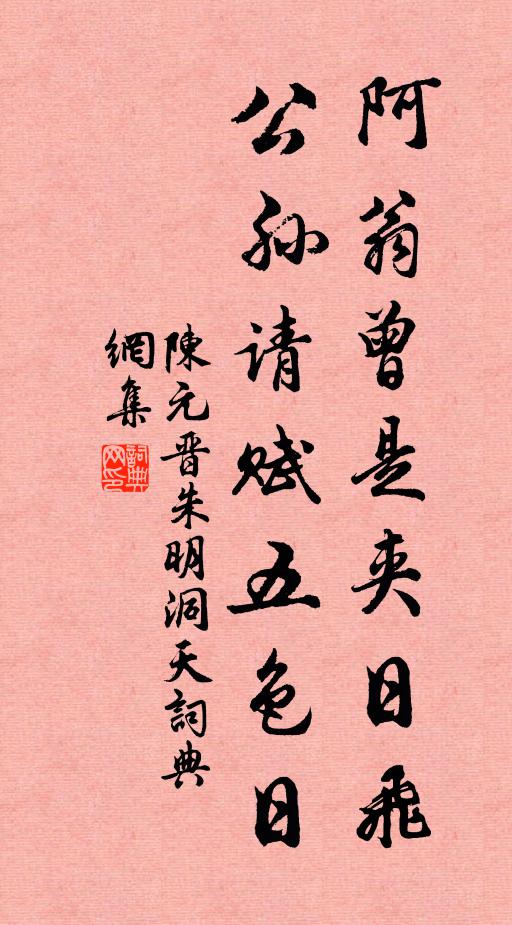 阿翁曾是夹日飛
公孙请赋五色日
陳元晋朱明洞天詞典
網集
詞典网印